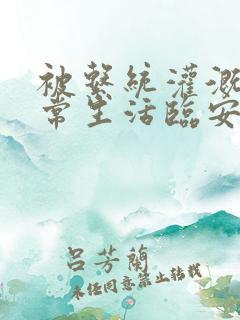 被系統灌溉
常生活臨安
呂芳蘭
未經同意禁止轉載